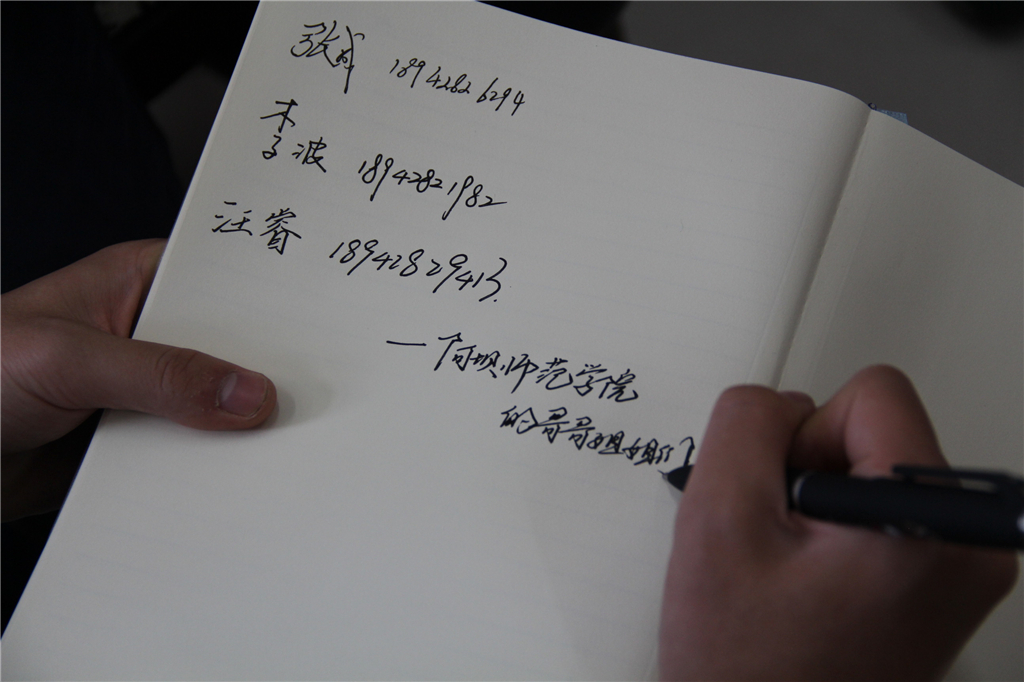 张成 18942826294
李波 18942821982
汪睿 18942829413.
一个阿坝师范学院
的哥哥姐姐们